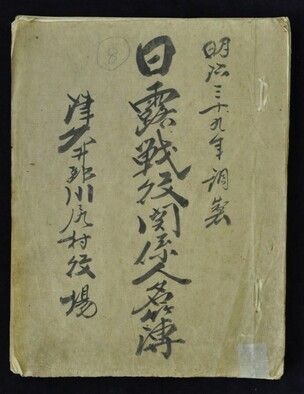 明治三十九年調製
日露戦役関係人名簿
津久井郡川尻村役場
8